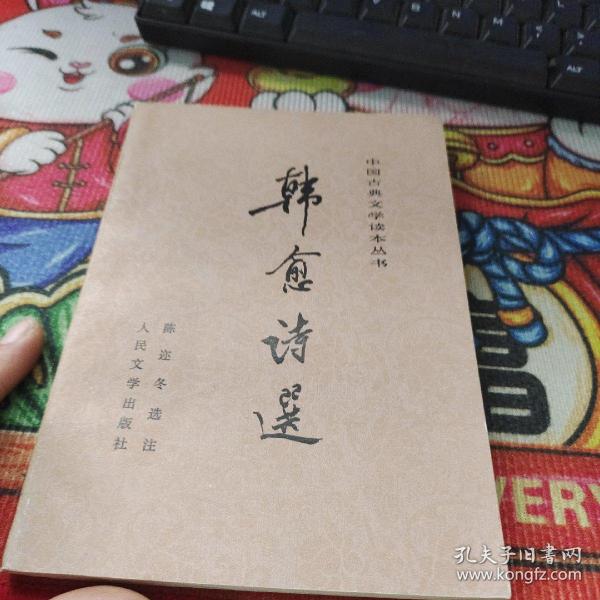 中国古典文学读本丛书
韩愈诗選
陈迩冬选注
人民文学出版社
VERY
ALT
ALT
孔夫子旧书网
www.kongfz.com